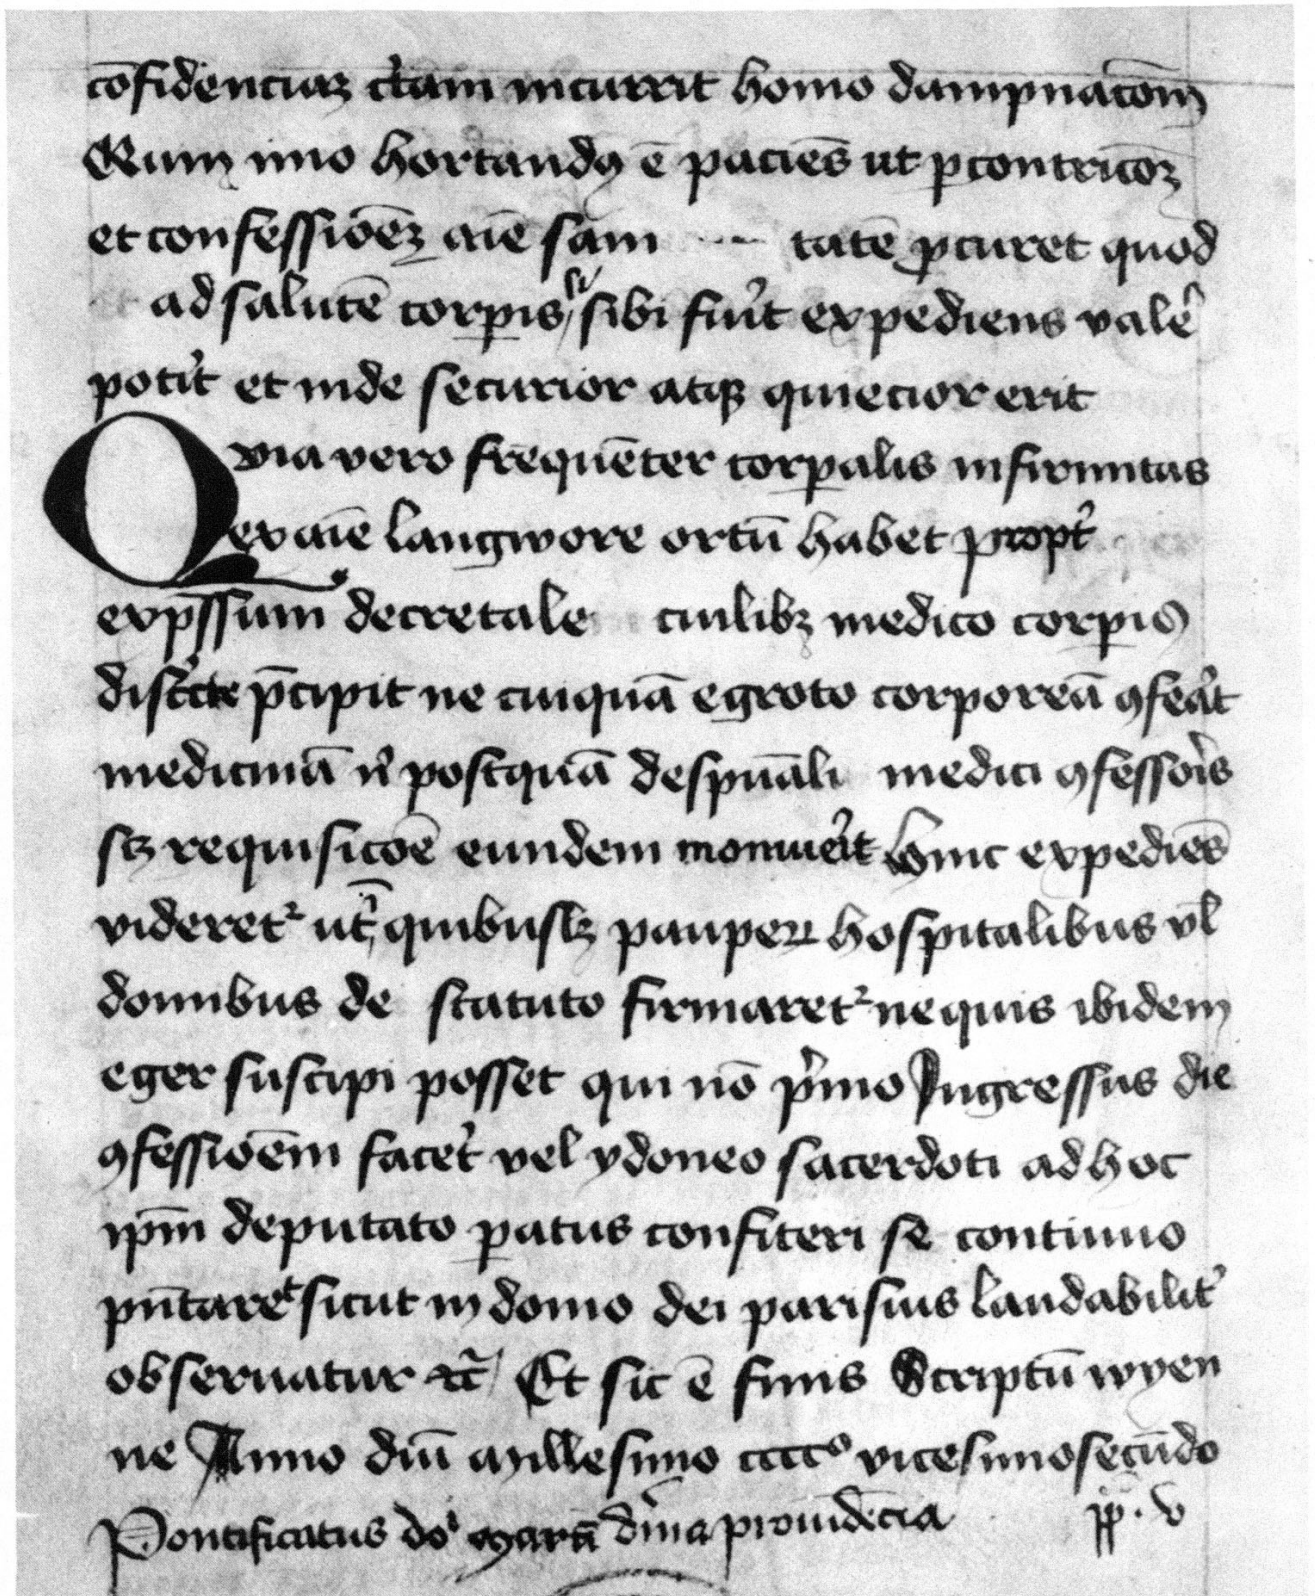 cōfidenciaꝫ ct̓am incurrit homo dampnacōm
Cum imo hortandꝯ ē paciēs ut ꝑ contricōꝫ
et confessiōeꝫ aīe sani tatē ꝓcuret quod
ad salutē corꝑis si sibi fiu̓t expediens vale̓
poti̓t et inde securior atqꝫ quiecior erit
Quia vero frequēter corꝑalis infirmitas
ex aīe langwore ortū habet propt̓
exp̄ssum decretale cuilibꝫ medico corꝑis
disc̓te p̄cipit ne cuiquā egroto corporeā ꝯfea̓t
medicinā n̓ postquā de spūali medici ꝯfessor̓s
scꝫ requisicōe eundem monuer̓it hinc expediēs
videret᷑ ut̓ quibuslꝫ pauperꝝ hospitalibus vl̄
domibus de statuto firmaret᷑ ne quis ibidem
eger suscipi posset qui nō p̓mo Ingressus die
ꝯfessiōem facet̓ vel ydoneo sacerdoti ad hoc
ip̄m deputato ꝑatus confiteri se continuo
pn̄taret sicut in domo dei parisius laudabilit̓
obseruatur ⁊c̄ Et sic ē finis Scriptū wyen
ne Anno dn̄i Millesimo ccccº vicesimosecūdo
Pontificatus do̓ Martī diuīa prouidēcia pp · v